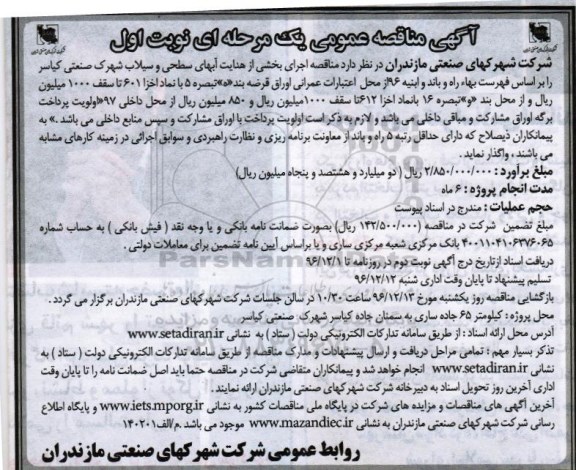 آگهی مناقصه عمومی یک مرحله ای نوبت اول
شرکت شهرکهای صنعتی مازندران در نظر دارد مناقصه اجرای بخشی از هدایت آبهای سطحی و سیلاب شهرک صنعتی کیاسر
را بر اساس فهرست بهاء راه و باند و ابنیه ۹۶از محل اعتبارات عمرانی اوراق قرضه بند«ه»تبصره ۵ با نماد اخزا ۶۰۱ تا سقف ۱۰۰۰ میلیون
ریال و از محل بند «و»تبصره ۱۶ بانماد اخزا ۶۱۲تا سقف ۱۰۰۰میلیون ریال و ۸۵۰ میلیون ریال از محل داخلی ۹۷«اولویت پرداخت
برگه اوراق مشارکت و مباقی داخلی می باشد و لازم به ذکر است اولویت پرداخت با اوراق مشارکت و سپس منابع داخلی می باشد .» به
پیمانکاران ذیصلاح که دارای حداقل رتبه ۵ راه و باند از معاونت برنامه ریزی و نظارت راهبردی و سوابق اجرائی در زمینه کارهای مشابه
می باشند ، واگذار نماید .
مبلغ برآورد : ۲/۸۵۰/۰۰۰/۰۰۰ ریال ( دو میلیارد و هشتصد و پنجاه میلیون ریال)
مدت انجام پروژه : ۶ ماه
حجم عملیات : مندرج در اسناد پیوست
مبلغ تضمین شرکت در مناقصه (۱۴۲/۵۰۰/۰۰۰ ریال) بصورت ضمانت نامه بانکی و یا وجه نقد ( فیش بانکی ) به حساب شماره
۴۰۰۱۱۰۴۱۰۶۳۷۶۰۶۵ بانک مرکزی شعبه مرکزی ساری و یا براساس آیین نامه تضمین برای معاملات دولتی .
دریافت اسناد ازتاریخ درج آگهی نوبت دوم در روزنامه تا ۹۶/۱۲/۱
تسلیم پیشنهاد تا پایان وقت اداری شنبه ۹۶/۱۲/۱۲
بازگشایی مناقصه روز یکشنبه مورخ ۹۶/۱۲/۱۳ ساعت ۱۰/۳۰ در سالن جلسات شرکت شهرکهای صنعتی مازندران برگزار می گردد.
محل پروژه : کیلومتر ۶۵ جاده ساری به سمنان جاده کیاسر شهرک صنعتی کیاسر
آدرس محل ارائه اسناد : از طریق سامانه تدارکات الکترونیکی دولت ( ستاد ) به نشانی www.setadiran.ir
تذکر بسیار مهم : تمامی مراحل دریافت و ارسال پیشنهادات و مدارک مناقصه از طریق سامانه تدارکات الکترونیکی دولت ( ستاد ) به
نشانی www.setadiran.ir انجام خواهد شد و پیمانکاران متقاضی شرکت در مناقصه حتما باید اصل ضمانت نامه را تا پایان وقت
اداری آخرین روز تحویل اسناد به دبیرخانه شرکت شهرکهای صنعتی مازندران ارائه نمایند .
آخرین آگهی های مناقصات و مزایده های شرکت در پایگاه ملی مناقصات کشور به نشانی www.iets.mporg.ir و پایگاه اطلاع
رسانی شرکت شهرکهای صنعتی مازندران به نشانی www.mazandiec.ir موجود می باشد .م/الف۱۴۰۲۰۱
روابط عمومی شرکت شهرکهای صنعتی مازندران